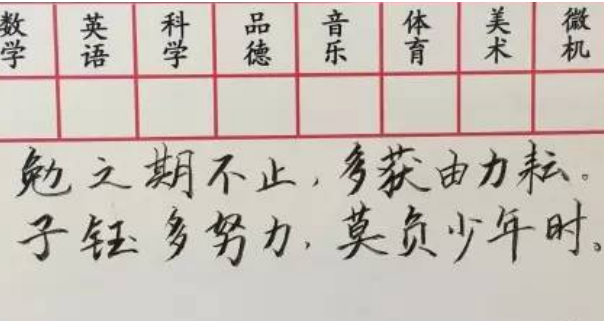 数学 英语 科学 品德 音乐 体育 美术 微机
勉之期不止，多获由力耘。
子钰多努力，莫负少年时。